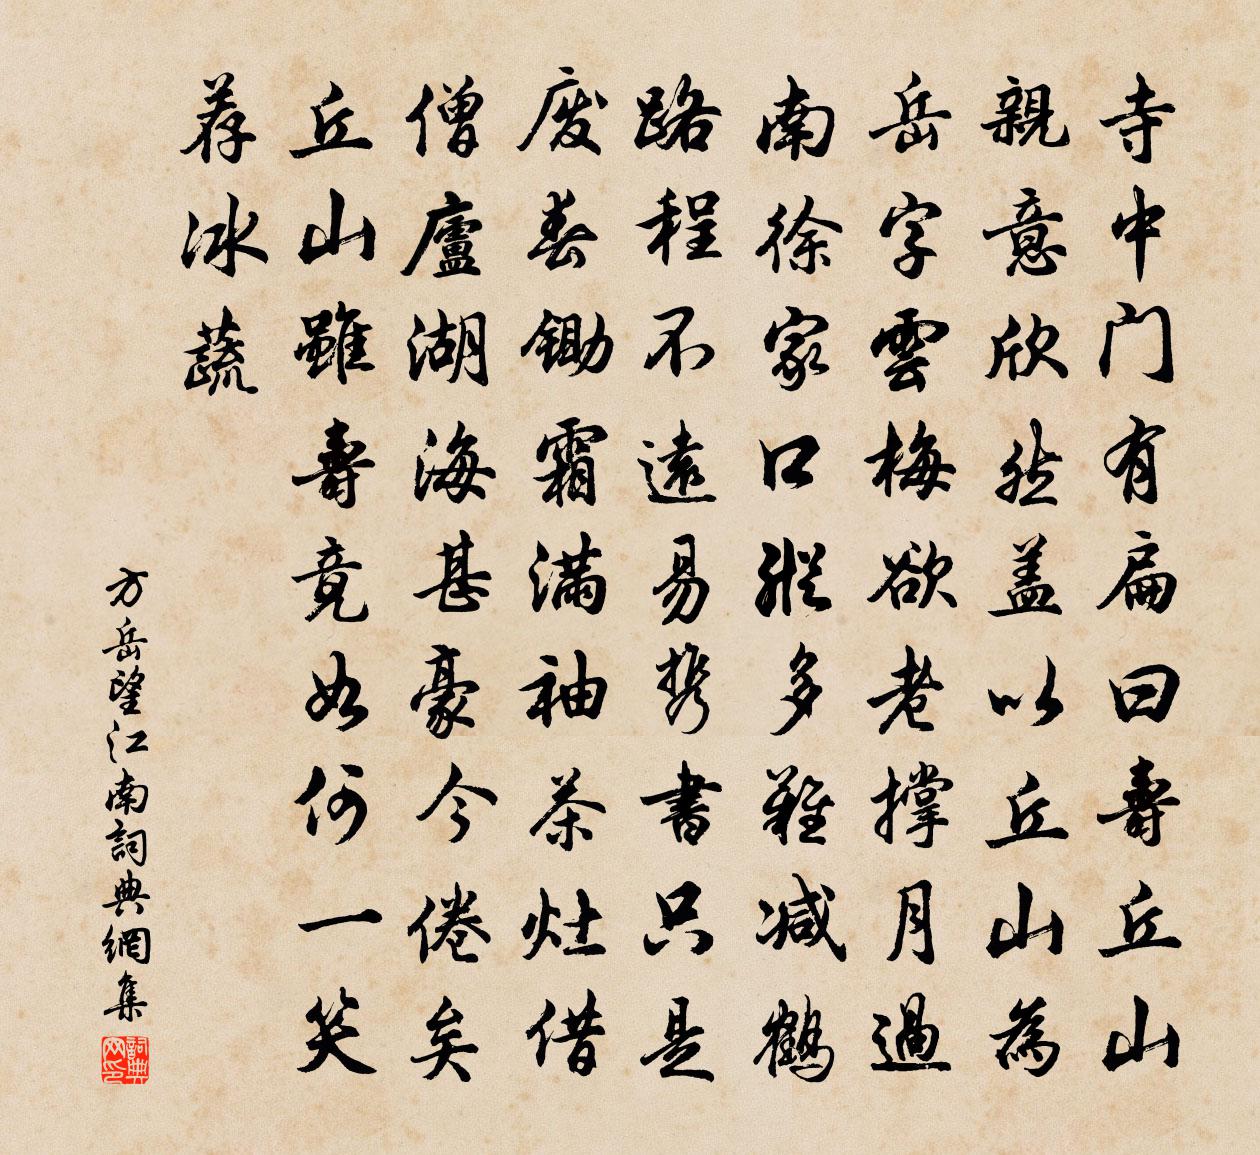 寺中门有扁曰壽丘山
親意欣然盖以丘山為
岳字雲梅欲老撑月過
南徐家口縱多難减鶴
路程不遠易携書只是
废春鋤霜滿袖茶灶借
僧廬湖海甚豪今倦矣
丘山雖壽竟如何一笑
荐冰蔬
方岳望江南詞典網集
詞典网印